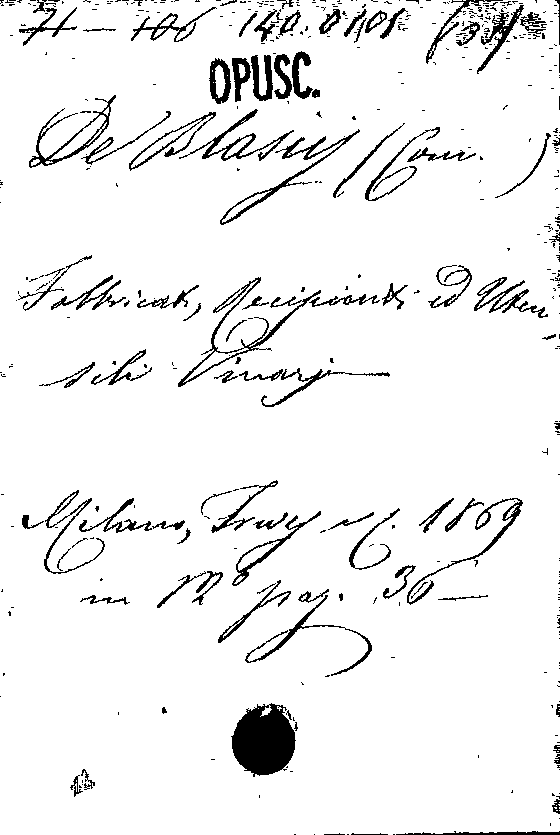 71 - 106 140.01.01 (31)
OPUSC.
De Blasiis (Com. )
Fabbricati, Recipienti ed Uten
sili Vinarj
Milano, Treves e C. 1869
in 12° pag. 36